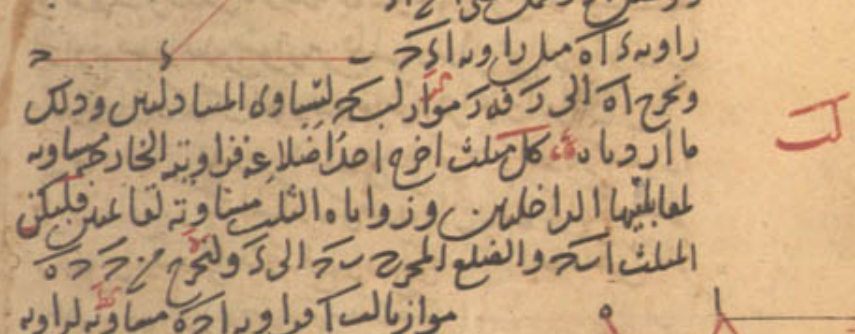 زاويه ء ا ه مثل زاويه ا ء ح
ونخرج ا ه الى ر فه ر مواز لب ح لتساوى المتبادلتين وذلك
ما اردناه كل مثلث اخرج احد اضلاعه فزاويته الخارجة مساوية
لب
لمقابلتيها الداخلتين وزواياه الثلث مساوية لقائمتين فليكن
المثلث ا ب ح والضلع المخرج ب ح الى ء ولنخرج من ح ح ه
موازيا لب ا فزاوية ا ح ه مساوية لزاوية